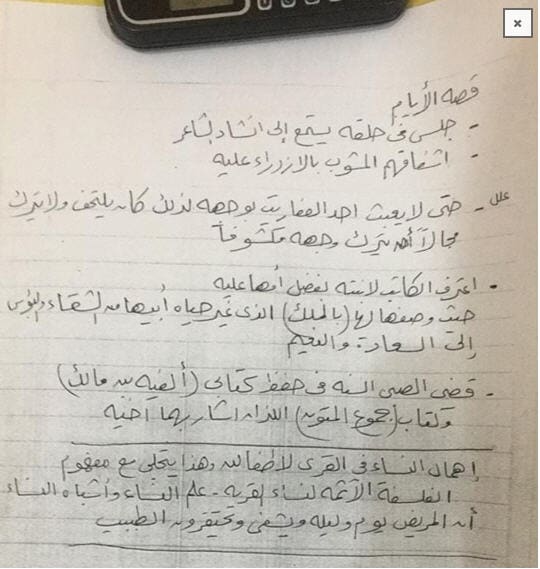 قصه الأيام
- جلس في حلقه يستمع إلى انشاد الشاعر
- اشفاقهم المشوب بالازدراء عليه
علل - حتى لا يعبث احد العفاريت بوجهه لذلك كان يلتحف ولا يترك
مجالاً أن يترك وجهه مكشوفاً
• اعترف الكاتب لابنته بفضل أمها عليه
حيث وصفها لها (بالملك) الذى غير حياه أبيها من الشقاء والبؤس
إلى السعادة والنعيم
- قضى الصبى السنه فى حفظ كتابى (ألفيه بن مالك)
وكتاب (مجموع المتون) اللذان اشار بهما اخيه
إهمال النساء فى القرى للاطفال وهذا يتجلى مع مفهوم
الفلسفة الآثمه لنساء القريه - علم النساء وأشباه النساء
أن المريض يوم وليله ويشفى ويحتقرون الطبيب